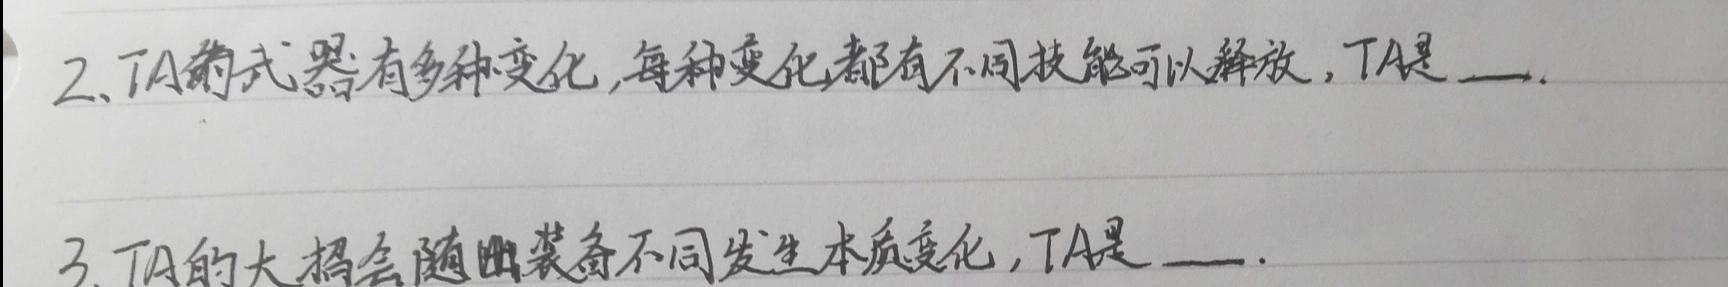 2、TA的武器有多种变化,每种变化都有不同技能可以释放,TA是___.
3、TA的大招会随出装备不同发生本质变化,TA是___.